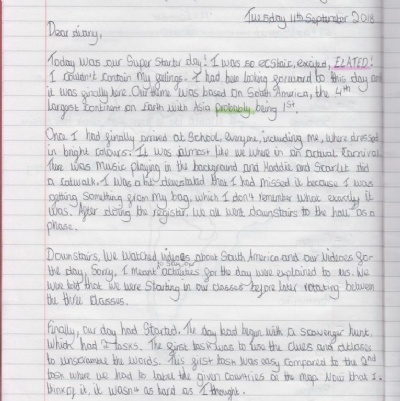 Tuesday 11th September 2018
Dear diary,
Today was our Super Starter day! I was so ecstatic, excited, ELATED!
I couldn't contain my feelings. I had been looking forward to this day and
it was finally here. Our theme was based on South America, the 4th
largest continent on Earth with Asia probably being 1st.
Once I had finally arrived at School, everyone, including me, where dressed
in bright colours. It was almost like we where in an actual Carnival.
There was music playing in the background and Maddie and Scarlet did
a catwalk. I was a bit devastated that I had missed it because I was
getting something from my bag, which I don't remember what exactly it
was. After doing the register, we all went downstairs to the hall as a
phase.
Downstairs, we watched videos about South America and our videos for
the day, Sorry, I meant to say our activities for the day were explained to us. We
were told that we were starting in our classes before later rotating between
the three classes.
Finally, our day had Started. The day had begun with a scavenger hunt,
which had 2 tasks. The first task was to use the clues and atlases
to unscramble the words. This first task was easy compared to the 2nd
task where we had to label the given countries on the map. Now that I
think of it, it wasn't as hard as I thought.